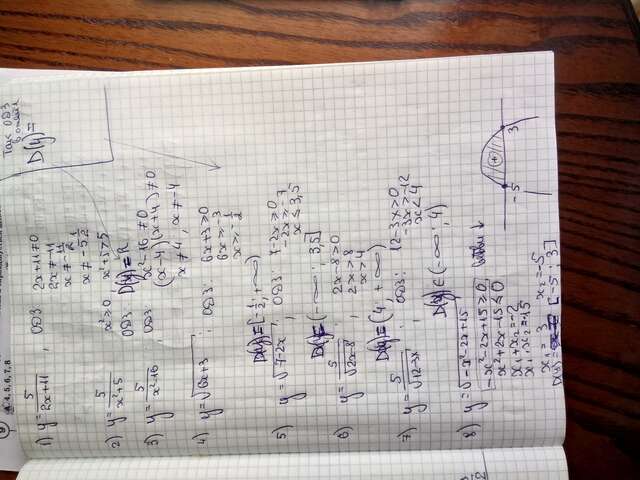 4, 5, 6, 7, 8
Так ОДЗ
D(y)=
1) y = 5/(2x+11) ОДЗ 2x+11≠0
2x ≠ -11
x ≠ -11/2
x ≠ -5 1/2
2) y = 5/(x²+5) x² ≥ 0 x²+5 ≥ 5
ОДЗ D(y) = R
3) y = 5/(x²-16) ОДЗ x²-16 ≠ 0
(x-4)(x+4) ≠ 0
x ≠ 4, x ≠ -4
4) y = √(6x+3) ; ОДЗ 6x+3 ≥ 0
6x ≥ -3
x ≥ -1/2
D(y) = [-1/2; +∞)
5) y = √(7-2x) , ОДЗ: 7-2x ≥ 0
-2x ≥ -7
x ≤ 3,5
D(y) = (-∞; 3,5]
6) y = 5/√(2x-8) ; 2x-8 > 0
2x > 8
x > 4
D(y) = (4; +∞)
7) y = 5/√(12-3x) , ОДЗ: 12-3x > 0
-3x > -12
x < 4
D(y) ∈ (-∞; 4)
8) y = √(-x²-2x+15)
-x²-2x+15 ≥ 0
x²+2x-15 ≤ 0
x₁+x₂ = -2
x₁·x₂ = -15
x₁ = 3 x₂ = -5
D(y) = [-5; 3]
+
-5 3